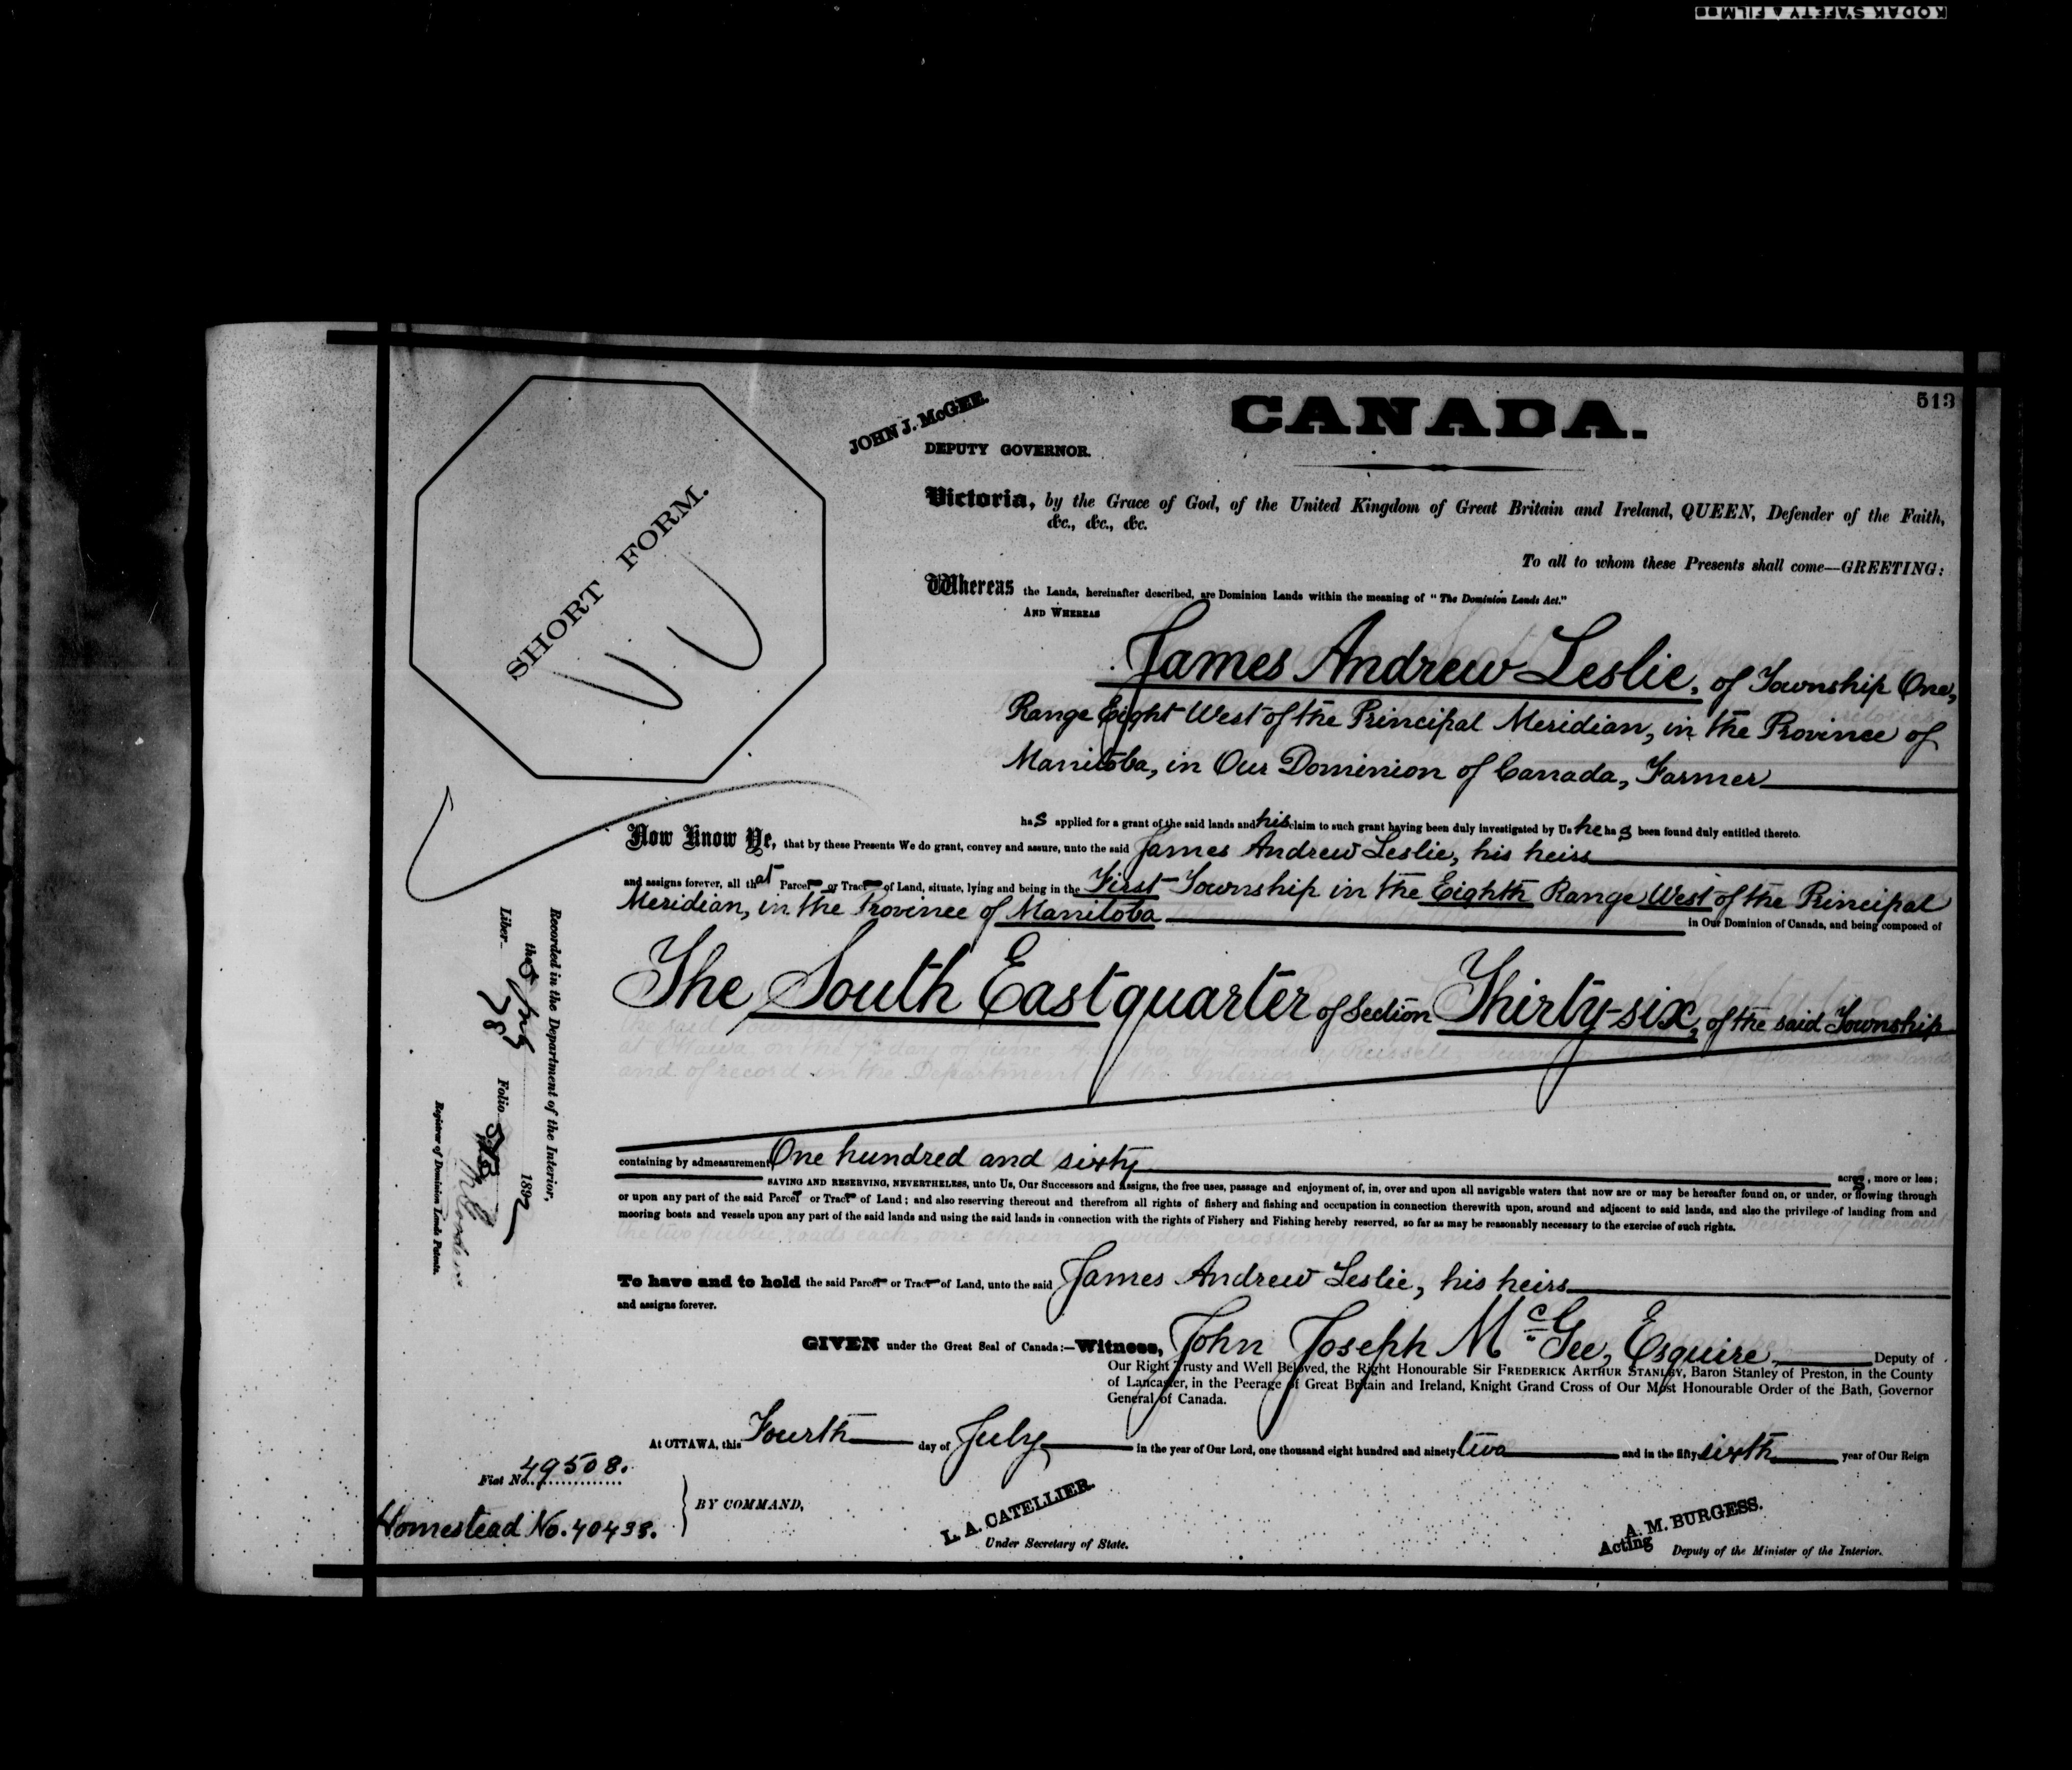 KODAK SAFETY FILM
513
CANADA.
JOHN J. McGEE.
DEPUTY GOVERNOR.
SHORT FORM.
Victoria, by the Grace of God, of the United Kingdom of Great Britain and Ireland, QUEEN, Defender of the Faith,
&c., &c., &c.
To all to whom these Presents shall come—GREETING:
Whereas the Lands, hereinafter described, are Dominion Lands within the meaning of "The Dominion Lands Act."
AND WHEREAS
James Andrew Leslie, of Township One,
Range Eight West of the Principal Meridian, in the Province of
Manitoba, in Our Dominion of Canada, Farmer
has applied for a grant of the said lands and his claim to such grant having been duly investigated by Us he has been found duly entitled thereto.
Now Know Ye, that by these Presents We do grant, convey and assure, unto the said James Andrew Leslie, his heirs
and assigns forever, all that Parcel or Tract of Land, situate, lying and being in the First Township in the Eighth Range West of the Principal
Meridian, in the Province of Manitoba
in Our Dominion of Canada, and being composed of
The South East quarter of Section Thirty-six, of the said Township
containing by admeasurement One hundred and sixty acres, more or less;
SAVING AND RESERVING, NEVERTHELESS, unto Us, Our Successors and Assigns, the free uses, passage and enjoyment of, in, over and upon all navigable waters that now are or may be hereafter found on, or under, or flowing through
or upon any part of the said Parcel or Tract of Land; and also reserving thereout and therefrom all rights of fishery and fishing and occupation in connection therewith upon, around and adjacent to said lands, and also the privilege of landing from and
mooring boats and vessels upon any part of the said lands and using the said lands in connection with the rights of Fishery and Fishing hereby reserved, so far as may be reasonably necessary to the exercise of such rights.
To have and to hold the said Parcel or Tract of Land, unto the said James Andrew Leslie, his heirs
and assigns forever.
GIVEN under the Great Seal of Canada:—Witness, John Joseph McGee, Esquire, Deputy of
Our Right Trusty and Well Beloved, the Right Honourable Sir FREDERICK ARTHUR STANLEY, Baron Stanley of Preston, in the County
of Lancaster, in the Peerage of Great Britain and Ireland, Knight Grand Cross of Our Most Honourable Order of the Bath, Governor
General of Canada.
At OTTAWA, this Fourth day of July in the year of Our Lord, one thousand eight hundred and ninety two and in the fifty sixth year of Our Reign
Fiat No. 49508.
Homestead No. 40493.
BY COMMAND,
L. A. CATELLIER.
Under Secretary of State.
A. M. BURGESS.
Acting Deputy of the Minister of the Interior.
Recorded in the Department of the Interior,
the 5 July 1892
Liber 78 Folio 513
Registrar of Dominion Lands Patents.